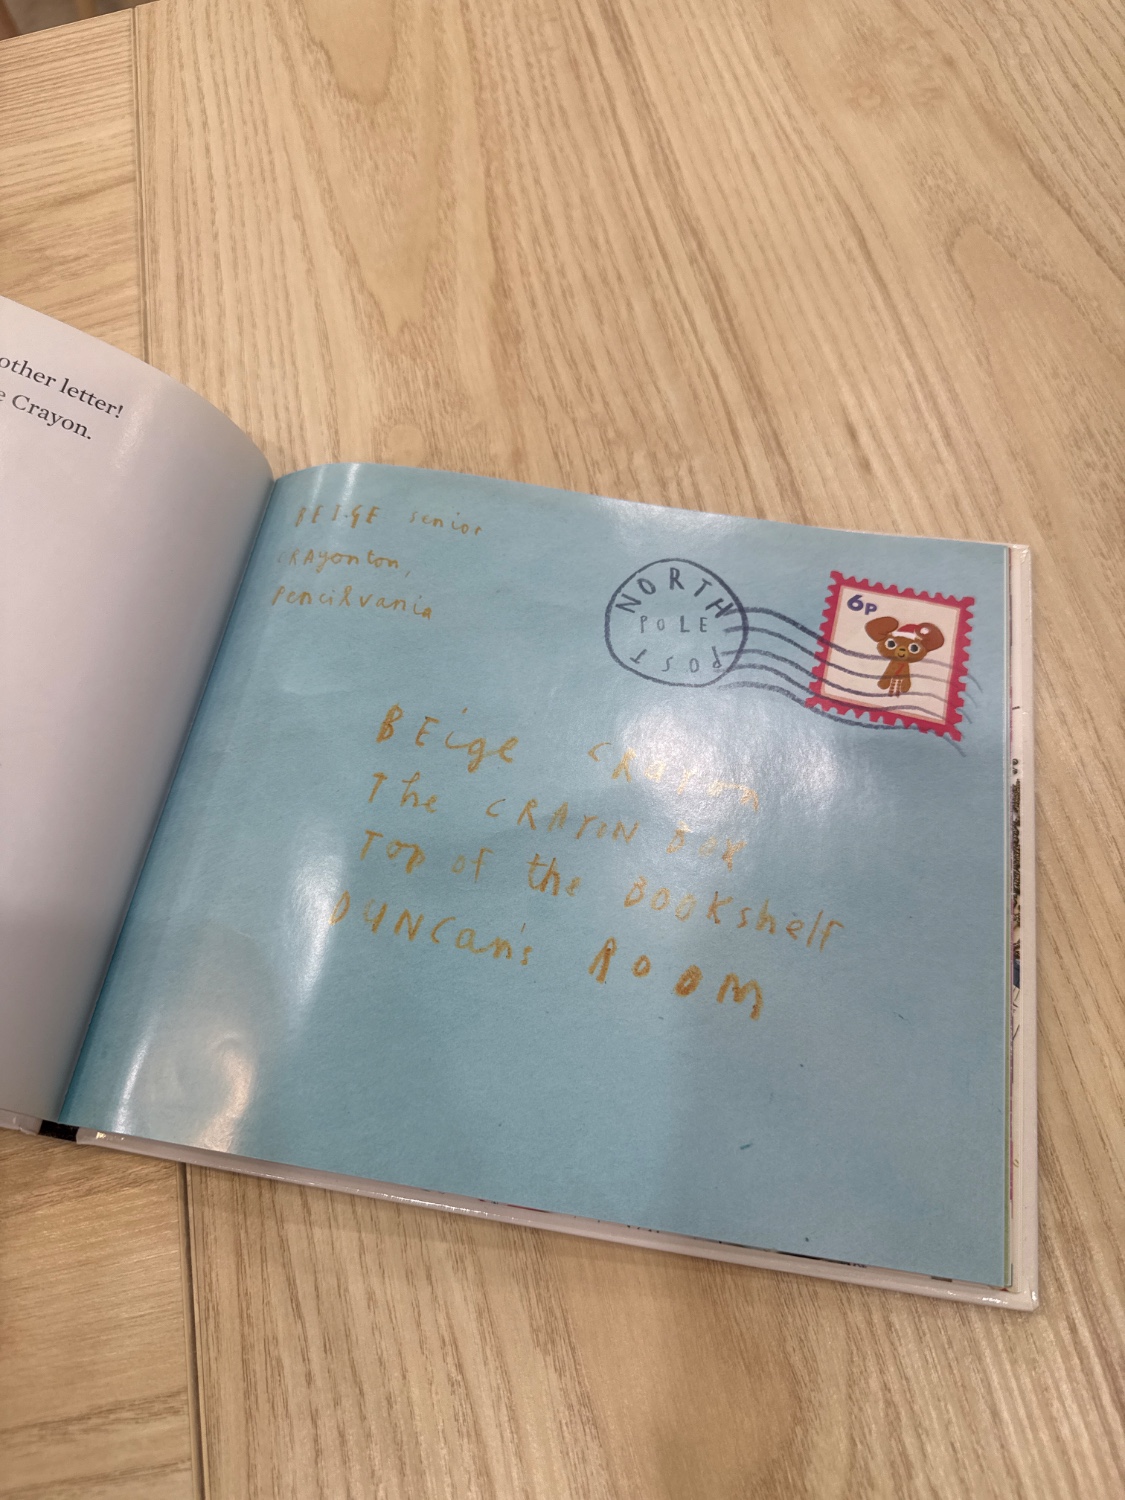 other letter!
Crayon.
BEIGE senior
CRAyonton,
Pencilvania
NORTH
POLE
POST
6P
BEige CRayon
The CRAYON BOX
Top of the BOOKshelf
DUNCan's ROOM